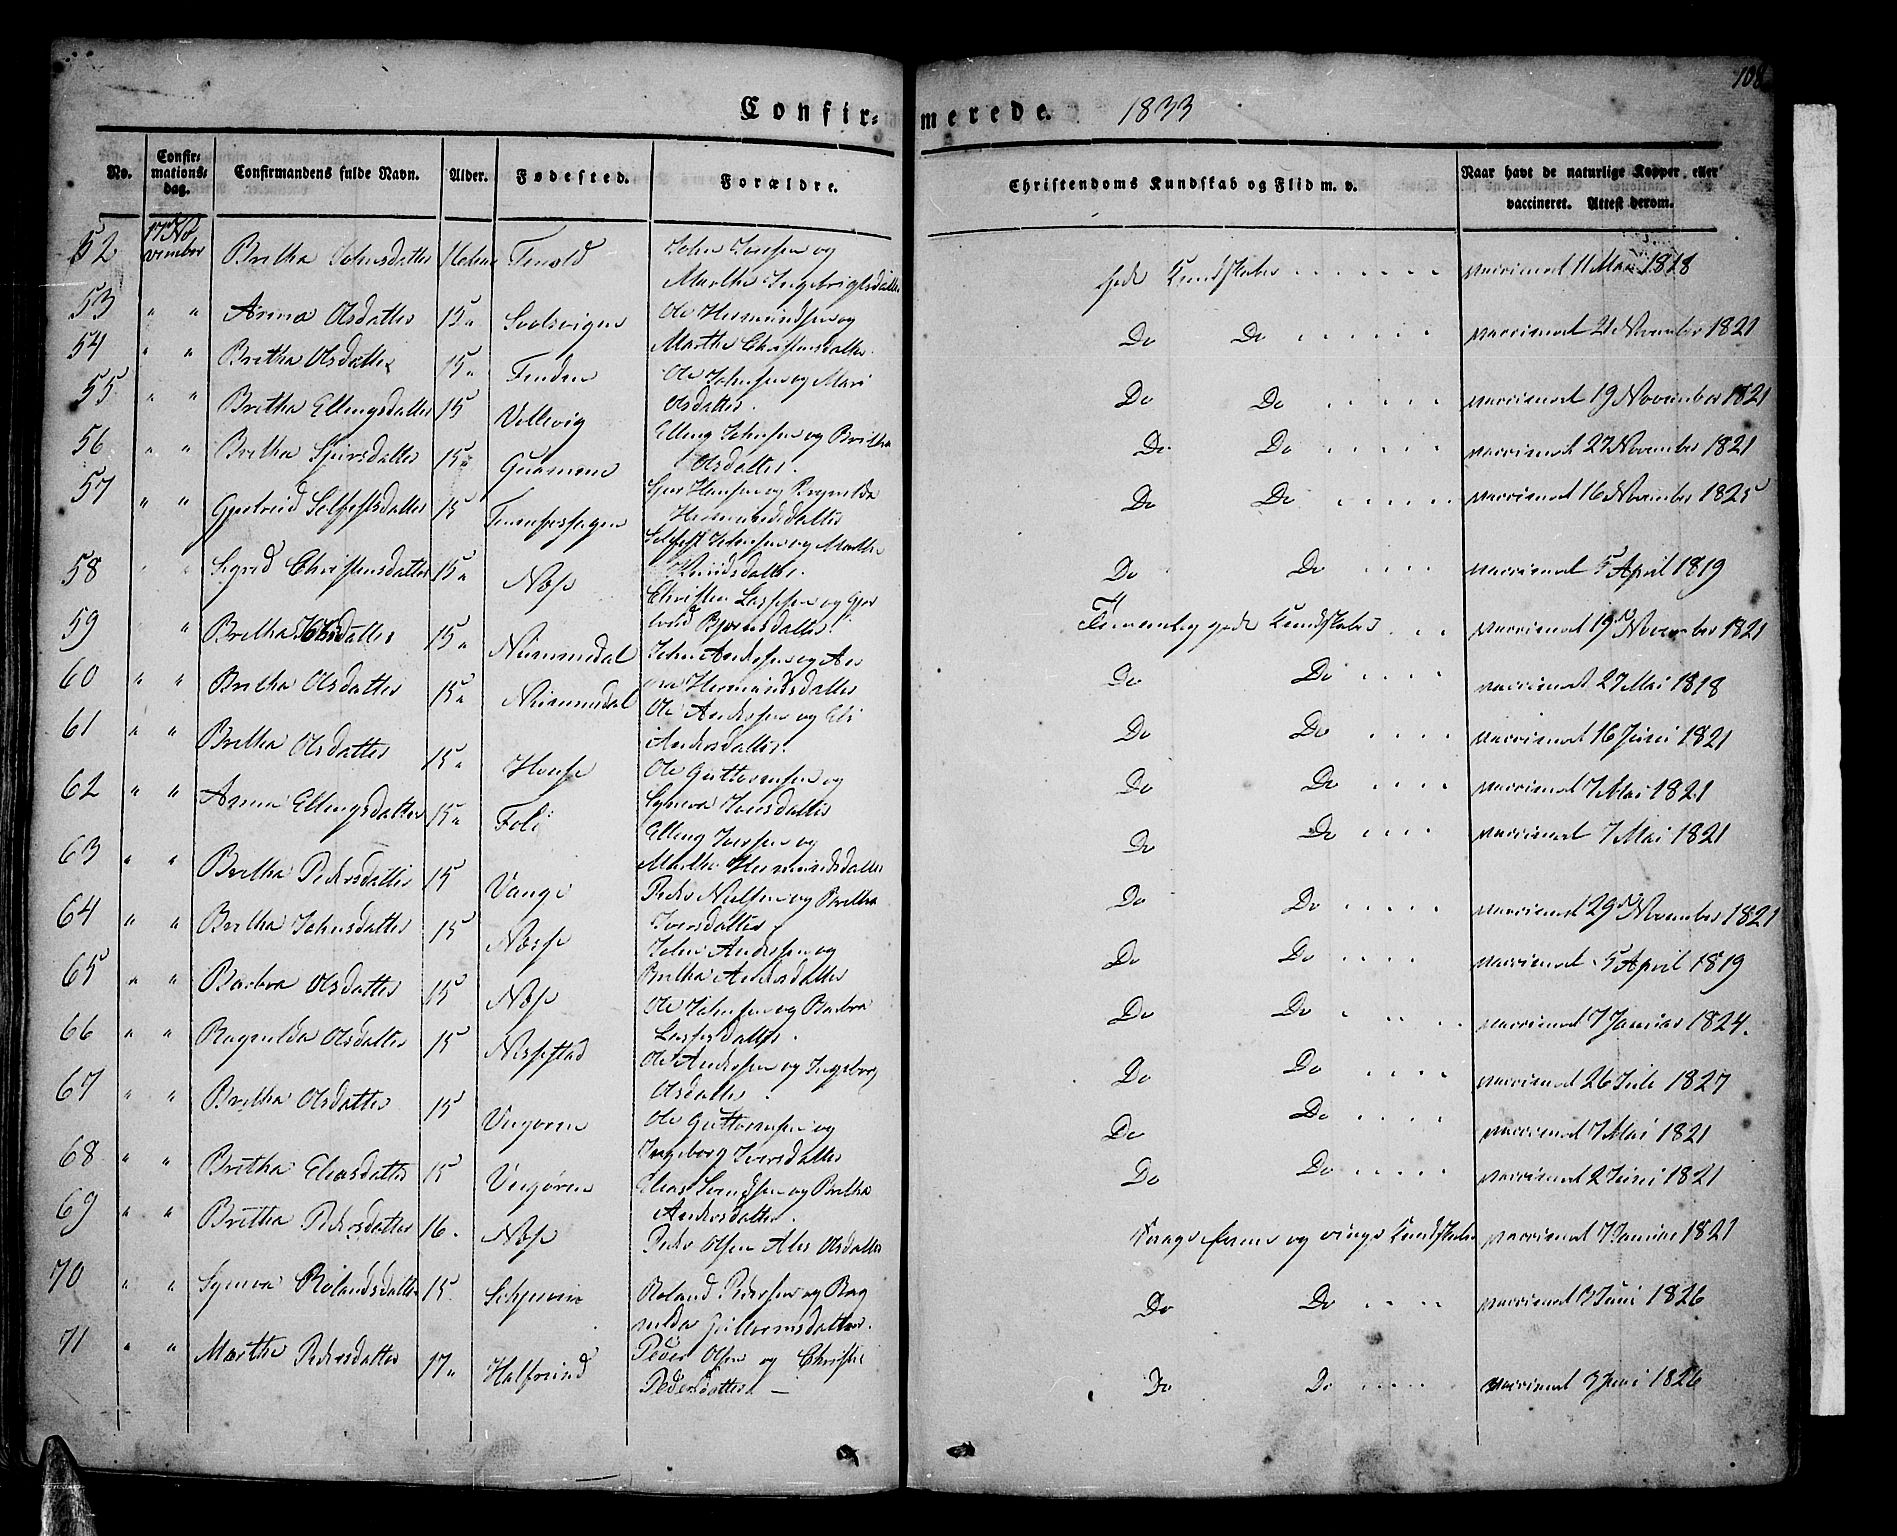 108
Confir- merede. 1833
No.
Confir-
mations-
dag.
Confirmandens fulde Navn.
Alder.
Fødested.
Forældre.
Christendoms Kundskab og Flid m. v.
Naar havt de naturlige Kopper, eller
vaccineret. Attest derom.
52 17 No
vember Britha Johnsdatter 16 Tenold John Iversen og
Martha Ingebrigtsdatter gode Kundskaber . . . . . . . vaccineret 11 Mai 1818
53 " " Anna Olsdatter 15 " Solsvigen Ole Hermundsen og
Martha Christensdatter Do Do . . . . . . vaccineret 21 November 1821
54 " " Britha Olsdatter 15 " Tenden Ole Johnsen og Mari
Olsdatter. Do Do . . . . . . vaccineret 19 November 1821
55 " " Britha Ellingsdatter 15 Vellevig Elling Johnsen og Britha
Olsdatter. Do Do . . . . . . vaccineret 27 November 1821
56 " " Britha Sjursdatter 15 " Sjur Hansen og Ragnilda
Hermundsdatter Do Do . . . . . . vaccineret 16 November 1825
57 " " Gjertrud Selfestsdatter 15 Selfest Johnsen og Martha
Knudsdatter. Do Do . . . . vaccineret 5 April 1819
58 " " Sigrid Christensdatter 15 " Næse Christen Lassesen og Gjer
trud Bjørnsdatter. Temmelig gode Kundskaber . . . vaccineret 19 November 1821
59 " Britha Johnsdatter 15 " Nummedal John Andersen og An
na Hermundsdatter Do Do . . . . vaccineret 27 Mai 1818
60 " " Britha Olsdatter 15 " Nummedal Ole Andersen og Eli
Andersdatter. Do Do . . . . vaccineret 16 Juni 1821
61 " " Britha Olsdatter 15 " Ole Guttormsen og
Synneva Iversdatter Do Do . . . . vaccineret 7 Mai 1821
62 " " Anna Ellingsdatter 15 " Foli Elling Iversen og
Martha Hermundsdatter Do Do . . . . vaccineret 7 Mai 1821
63 " " Britha Pedersdatter 15 Vange Peder Nielsen og Britha
Iversdatter Do Do . . . . . vaccineret 29 November 1821
64 " " Britha Johnsdatter 15 Næse John Andersen og
Britha Andersdatter Do Do . . . . vaccineret 5 April 1819
65 " " Barbra Olsdatter 15 Næse Ole Johnsen og Barbra
Lassesdatter. Do Do . . . . vaccineret 7 Januar 1824.
66 " " Ragnilda Olsdatter 15 Nessestad Ole Andersen og Ingeborg
Olsdatter. Do Do . . . . vaccineret 26 Juli 1827
67 " " Britha Olsdatter 15 Vngøren Ole Guttormsen og
Ingeborg Iversdatter Do Do . . . . vaccineret 7 Mai 1821
68 " " Britha Eliasdatter 15 Vngøren Elias Svendsen og Britha
Andersdatter. Do Do . . . . vaccineret 2 Juni 1821
69 " " Britha Pedersdatter 16. Næse Peder Olsen Olsdatter
og ringe Kundskaber vaccineret 7 Januar 1821
70 " " Synneva Rolandsdatter 15. Roland Pedersen og Rag
nilda Guttormsdatter. Do Do . . . . vaccineret Juni 1826
71 " " Martha Pedersdatter 17 " Peder Olsen og Christi
Pedersdatter — Do Do . . . . . vaccineret 3 Juni 1826